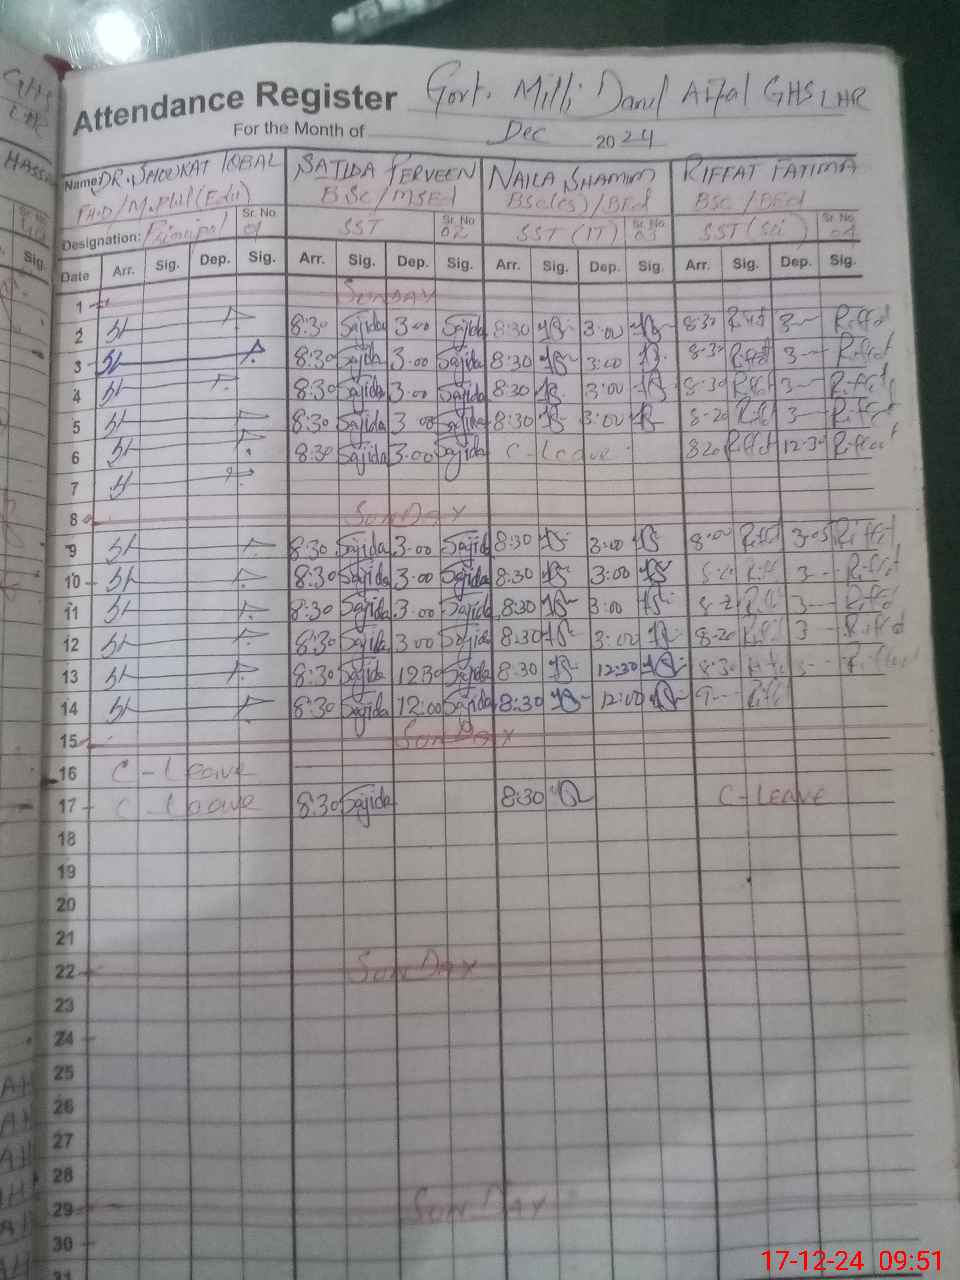 Attendance Register Govt. Milli Darul Atfal GHS LHR
For the Month of Dec 2024
Name DR. SHOUKAT IQBAL SAJIDA PERVEEN NAILA SHAMIM RIFFAT FATIMA
PH.D/M.Phil(Edu) BSc/MSEd BSc(CS)/BEd BSC/BEd
Designation: Principal Sr. No. 01 SST Sr. No. 02 SST (IT) Sr. No. 03 SST (Sci) Sr. No. 04
Date Arr. Sig. Dep. Sig. Arr. Sig. Dep. Sig. Arr. Sig. Dep. Sig. Arr. Sig. Dep. Sig.
1 SUNDAY
2 8:30 Sajida 3:00 Sajida 8:30 3:00 8:30 Riffat 3 Riffat
3 8:30 Sajida 3:00 Sajida 8:30 3:00 8:30 Riffat 3 Riffat
4 8:30 Sajida 3:00 Sajida 8:30 3:00 8:30 Riffat 3 Riffat
5 8:30 Sajida 3:00 Sajida 8:30 3:00 8-20 Riffat 3 Riffat
6 8:30 Sajida 3:00 Sajida C-Leave 820 Riffat 12:30 Riffat
7
8 SUNDAY
9 8:30 Sajida 3:00 Sajida 8:30 3:00 8:00 Riffat 3:05 Riffat
10 8:30 Sajida 3:00 Sajida 8:30 3:00 8-20 Riffat 3 Riffat
11 8:30 Sajida 3:00 Sajida 8:30 3:00 8-20 Riffat 3 Riffat
12 8:30 Sajida 3:00 Sajida 8:30 3:00 8-20 Riffat 3 Riffat
13 8:30 Sajida 12:30 Sajida 8:30 12:30 8:30 Riffat 3 Riffat
14 8:30 Sajida 12:00 Sajida 8:30 12:00 9 Riffat
15 SUNDAY
16 C-Leave
17 C-Leave 8:30 Sajida 8:30 C-LEAVE
18
19
20
21
22 SUNDAY
23
24
25
26
27
28
29 SUNDAY
30
31
17-12-24 09:51